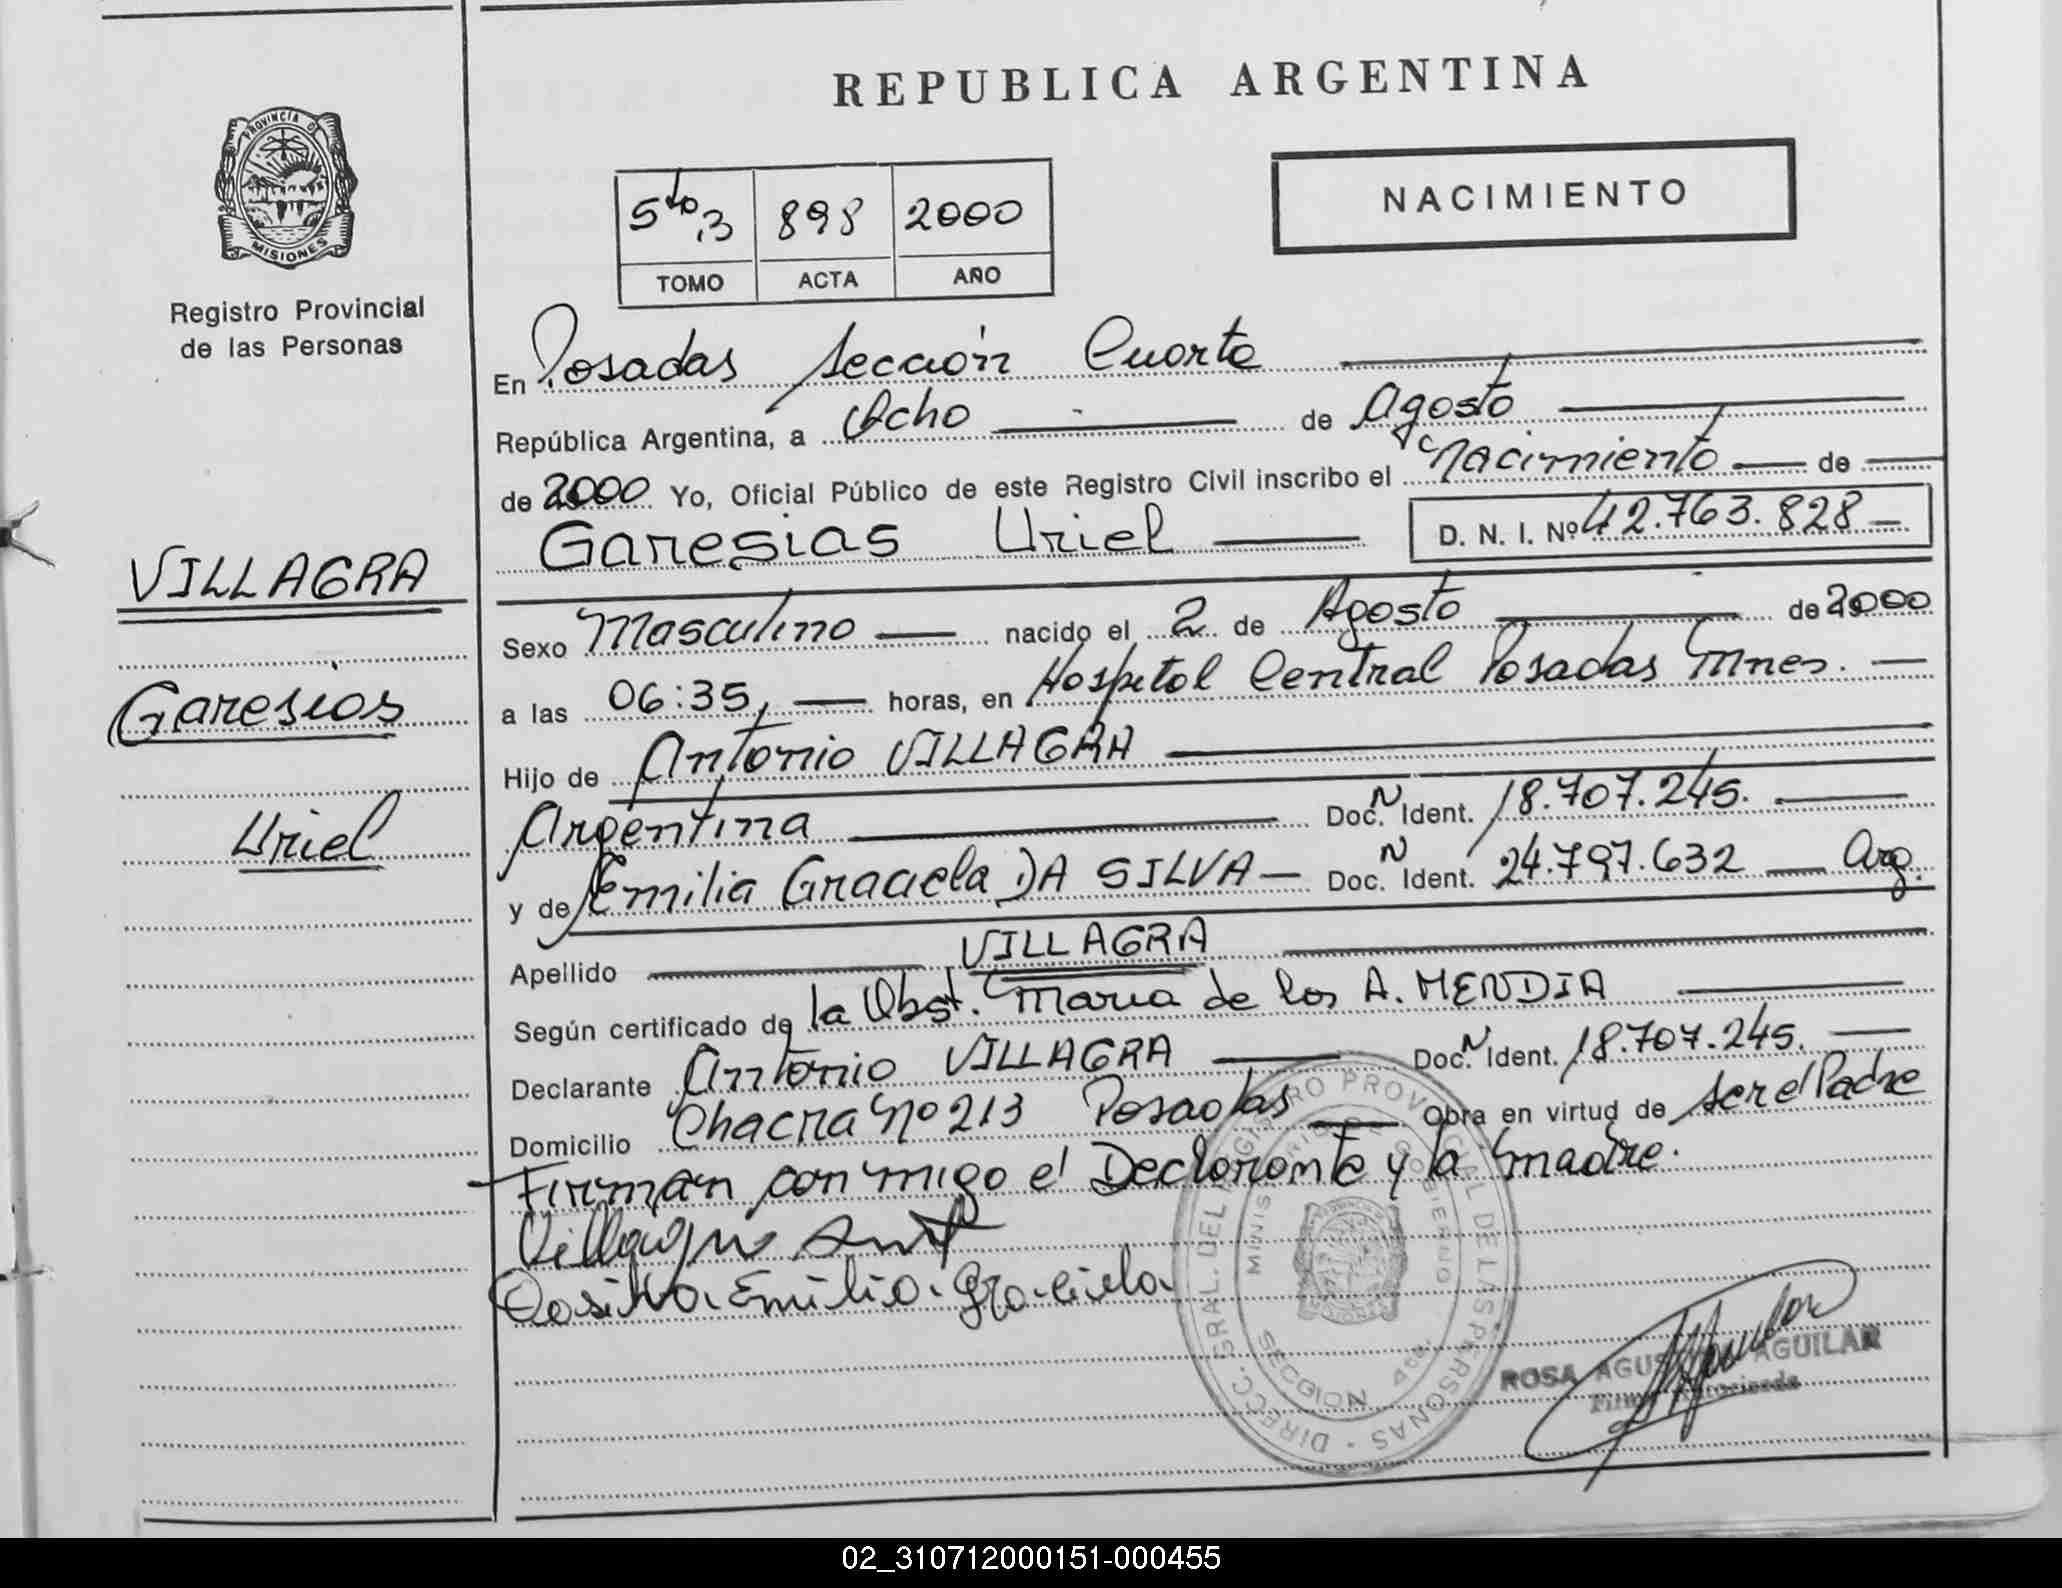 REPUBLICA ARGENTINA
PROVINCIA DE
MISIONES
Registro Provincial
de las Personas
5to 3 898 2000
TOMO ACTA AÑO
NACIMIENTO
En Posadas Sección Cuarta
República Argentina, a Ocho de Agosto
de 2000 Yo, Oficial Público de este Registro Civil inscribo el Nacimiento de
Garesias Uriel D. N. I. Nº 42.763.828
VILLAGRA
Garesias
Uriel
Sexo Masculino nacido el 2 de Agosto de 2000
a las 06:35, horas, en Hospital Central Posadas Mnes.
Hijo de Antonio VILLAGRA
Argentina Doc. N Ident. 18.707.245.
y de Emilia Graciela DA SILVA Doc. N Ident. 24.797.632 Arg.
Apellido VILLAGRA
Según certificado de la Obst. Maria de los A. MENDIA
Declarante Antonio VILLAGRA Doc. N Ident. 18.707.245.
Domicilio Chacra Nº 213 Posadas Obra en virtud de ser el Padre
Firman conmigo el Declarante y la madre.
Villagra Ant
Dasilva Emilia Graciela
DIRECC. GRAL. DEL REGISTRO PROVINCIAL DE LAS PERSONAS
MINISTERIO DE GOBIERNO
SECCION 4ta
ROSA AGUS AGUILAR
Firma Autorizada
02_310712000151-000455